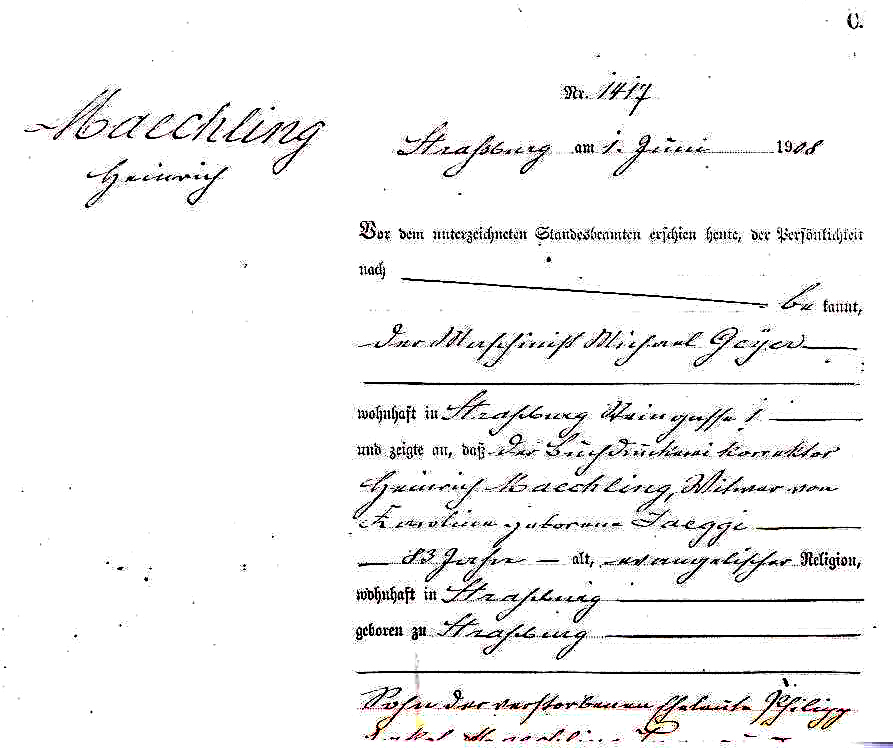 C.
Nr. 1417
Maechling
Heinrich
Straßburg am 1. Juni 1908
Vor dem unterzeichneten Standesbeamten erschien heute, der Persönlichkeit
nach be kannt,
der Maschinist Michael Geÿer
wohnhaft in Straßburg 1
und zeigte an, daß der Buchdruckerei korrektor
Heinrich Maechling, Witwer von
Karoline geborene Jaeggi
83 Jahre alt, evangelischer Religion,
wohnhaft in Straßburg
geboren zu Straßburg
Sohn der verstorbenen Eheleute Philipp
Maechling